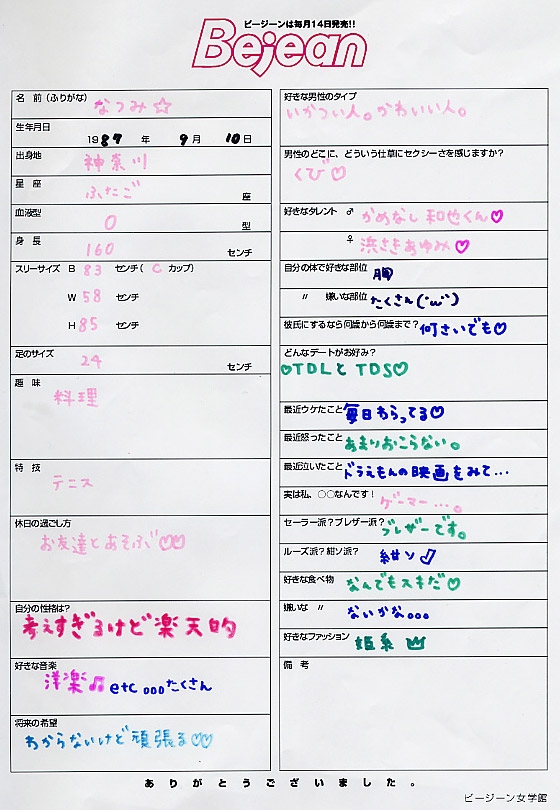 ビージーンは毎月14日発売!!
Bejean
名 前(ふりがな) なつみ☆
生年月日
1987 年 9月 10日
出身地 神奈川
星 座 ふたご 座
血液型 O 型
身 長 160 センチ
スリーサイズ B 83 センチ( C カップ)
W 58 センチ
H 85 センチ
足のサイズ 24 センチ
趣 味
料理
特 技
テニス
休日の過ごし方
お友達とあそぶ♡♡
自分の性格は?
考えすぎるけど楽天的
好きな音楽
洋楽♫etc...たくさん
将来の希望
わからないけど頑張る♡♡
好きな男性のタイプ
いかつい人。かわいい人。
男性のどこに、どういう仕草にセクシーさを感じますか?
くび♡
好きなタレント ♂ かめなし和也くん♡
♀ 浜さきあゆみ♡
自分の体で好きな部位 胸
〃 嫌いな部位 たくさん(´ω`)
彼氏にするなら何歳から何歳まで? 何さいでも♡
どんなデートがお好み?
♡TDLとTDS♡
最近ウケたこと 毎日わらってる♡
最近怒ったこと あまりおこらない。
最近泣いたこと ドラえもんの映画をみて...
実は私、〇〇なんです! ゲーマー...。
セーラー派?ブレザー派? ブレザーです。
ルーズ派?紺ソ派? 紺ソ♪
好きな食べ物 なんでもスキだ♡
嫌いな 〃 ないかな...
好きなファッション 姫系
備 考
ありがとうございました。
ビージーン女学館